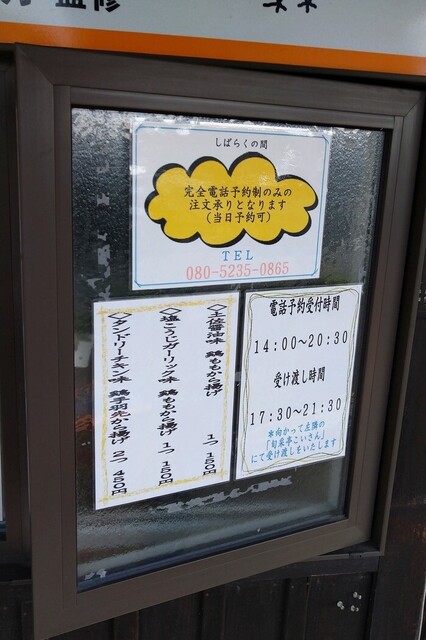 監修
しばらくの間
完全電話予約制のみの
注文承りとなります
(当日予約可)
TEL
080-5235-0865
◇土佐醤油味 鶏ももから揚げ 1つ 150円
◇塩こうじガーリック味 鶏ももから揚げ 1つ 150円
◇タンドリーチキン味 鶏手羽先から揚げ 2つ 450円
電話予約受付時間
14:00～20:30
受け渡し時間
17:30～21:30
*向かって左隣の
「旬采亭こいさん」
にて受け渡しをいたします